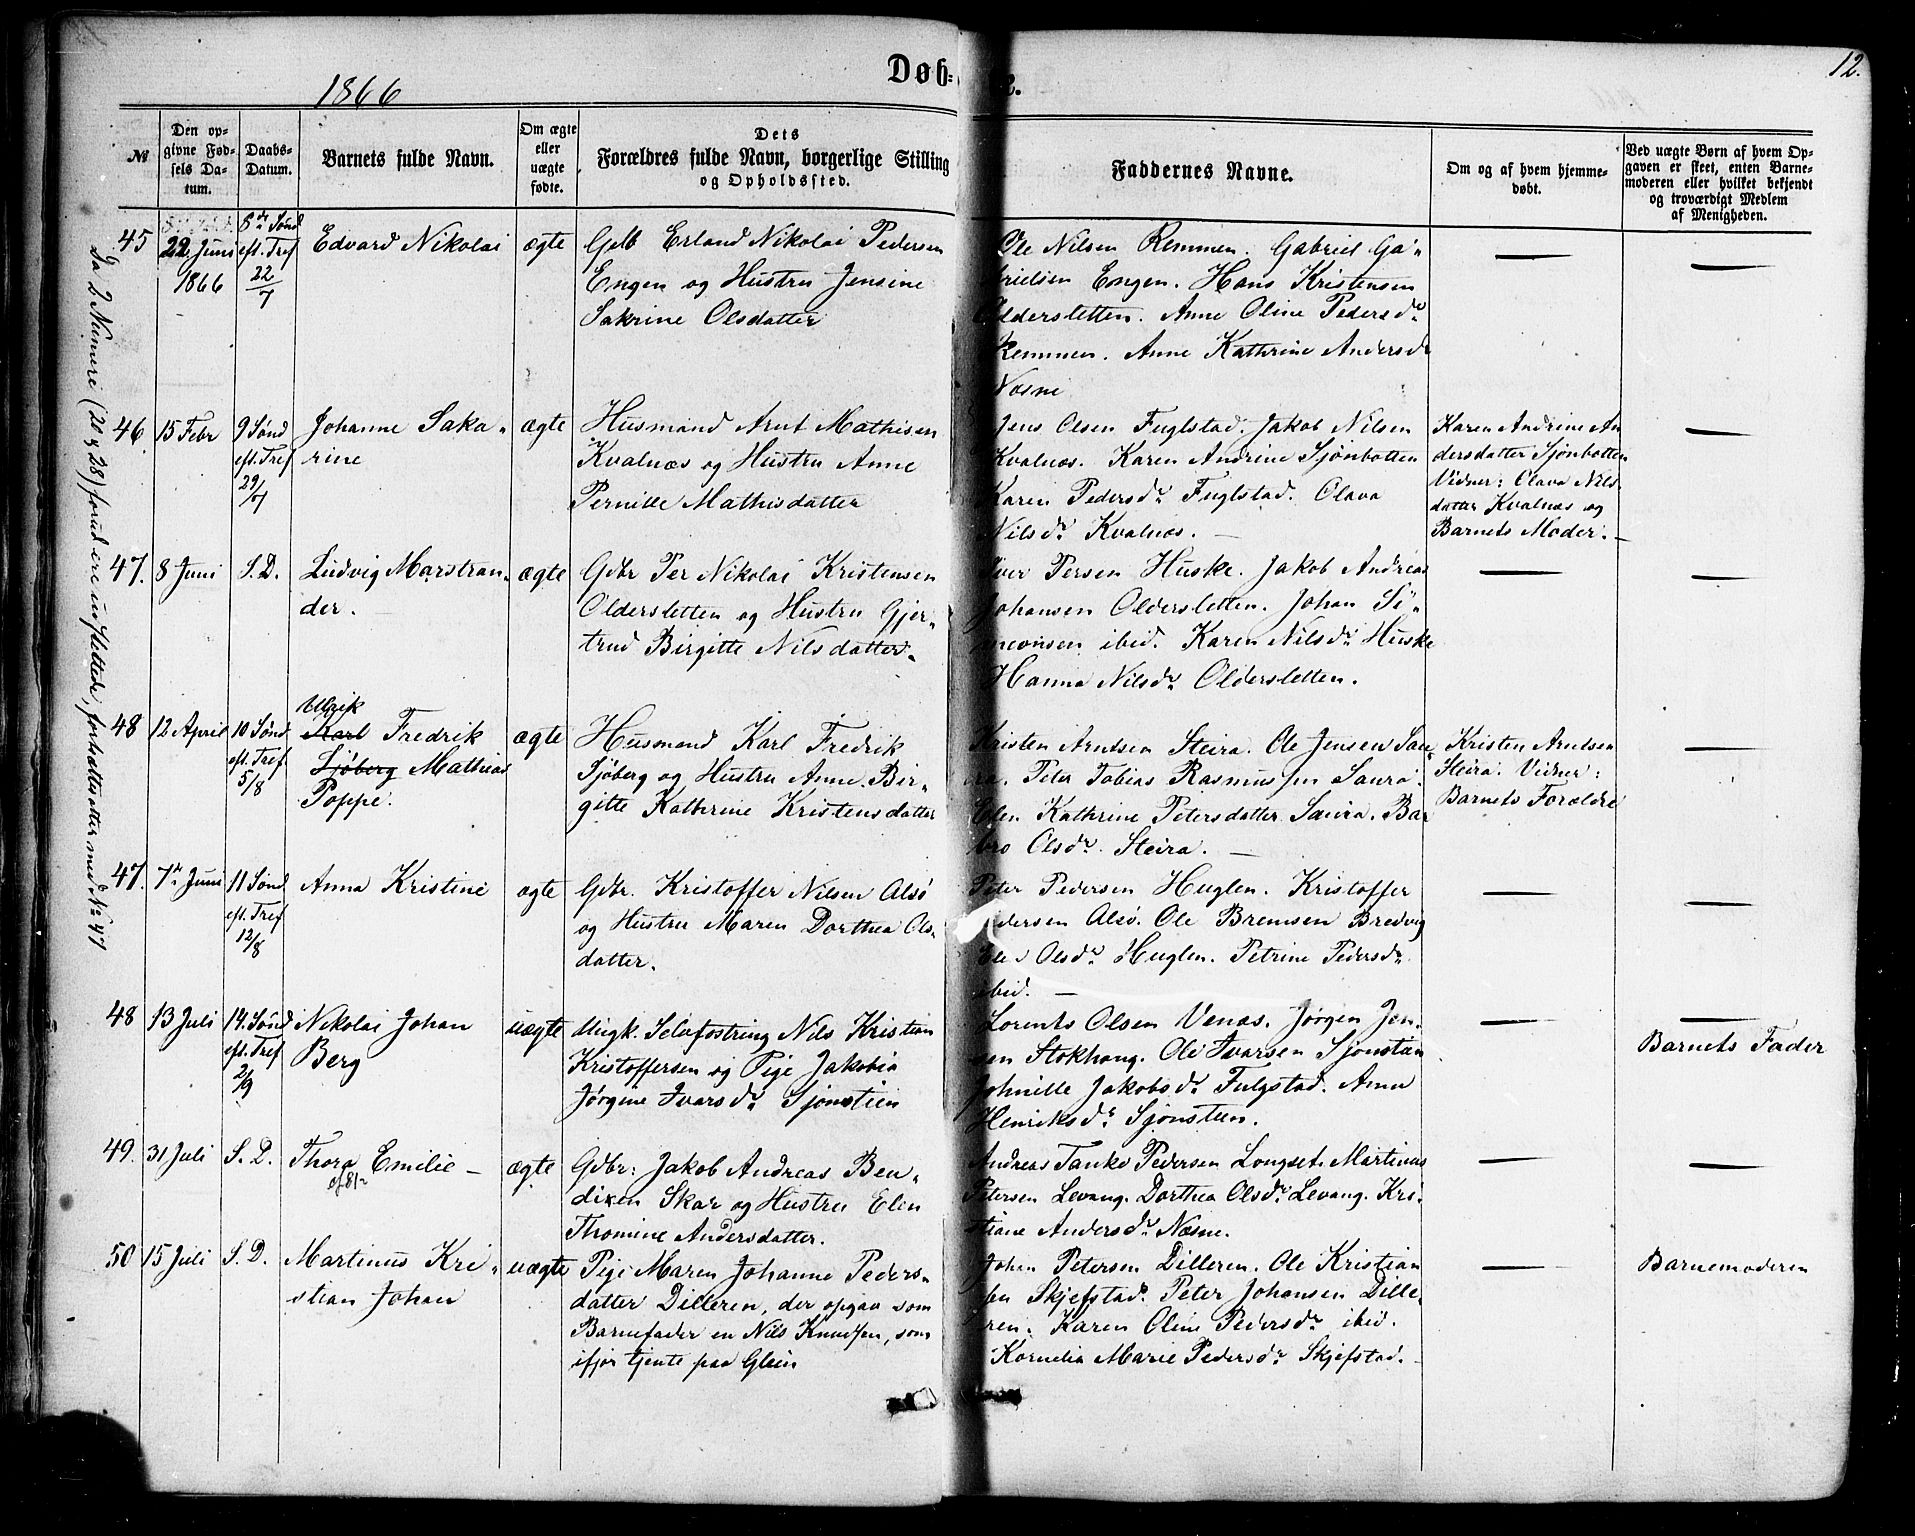 Døb-
e.
12.
1866
№
Den op-
givne Fød-
sels Da-
tum.
Daabs-
Datum.
Barnets fulde Navn.
Om ægte
eller
uægte
fødte.
Dets
Forældres fulde Navn, borgerlige Stilling
og Opholdssted.
Faddernes Navne.
Om og af hvem hjemme-
døbt.
Ved uægte Børn af hvem Op-
gaven er skeet, enten Barne-
moderen eller hvilket bekjendt
og troværdigt Medlem
af Menigheden.
Da 2 Numere (20 & 28) forud ere udslettede, fortsættes atter med № 47
45
22 Juni
1866
8de Sønd
eft. Tref
22/7
Edvard Nikolai
ægte
Gdb Erland Nikolai Pedersen
Engen og Hustru Jensine
Sakrine Olsdatter
Ole Nilsen Remmen. Gabriel Ga-
brielsen Engen. Hans Kristensen
Oldersletten. Anne Oline Pedersdr
Remmen. Anne Kathrine Andersdr
Næsne
46
15 Febr
9 Sønd
eft. Tref
29/7
Johanne Saka-
rine
ægte
Husmand Arnt Mathisen
Kvalnæs og Hustru Anne
Pernille Mathisdatter
Jens Olsen Fuglstad. Jakob Nilsen
Kvalnæs. Karen Andrine Sjønbotten
Karen Pedersdr Fuglstad. Olava
Nilsdr Kvalnæs. —
Karen Andrine An
dersdatter Sjønbotten
Vidner: Olava Nils-
datter Kvalnæs og
Barnets Moder. —
47.
8 Juni
S. D.
Ludvig Marstran-
der.
ægte
Gdbr Per Nikolai Kristensen
Oldersletten og Hustru Gjer-
trud Birgitte Nilsdatter.
Iver Persen Huske. Jakob Andreas
Johansen Oldersletten. Johan Si-
meonsen ibid. Karen Nilsdr Huske
Hanna Nilsdr Oldersletten.
48
12 April
10 Sønd
eft. Tref
5/8
Ulrik
Karl Fredrik
Sjøberg Mathias
Poppe.
ægte
Husmand Karl Fredrik
Sjøberg og Hustru Anne Bir-
gitte Kathrine Kristensdatter
Kristen Arntsen Steira. Ole Jensen Sau-
ra. Peter Tobias Rasmussen Saura.
Elen Kathrine Petersdatter Saura. Bar
bro Olsdr. Steira. —
Kristen Arntsen
Steira. Vidner:
Barnets Forældre
47.
7de Juni
11 Sønd
eft. Tref
12/8
Anna Kristine
ægte
Gdbr. Kristoffer Nilsen Alsø
og Hustru Maren Dorthea Ols-
datter.
Peter Pedersen Huglen. Kristoffer
Pedersen Alsø. Ole Bremsen Bredvig
Olsdr Huglen. Petrine Pedersdr
ibid. —
48
13 Juli
14. Sønd
eft. Tref
2/9
Nikolai Johan
Berg
uægte
Ungk. Selvfostring Nils Kristian
Kristoffersen og Pige Jakobia
Jørgine Ivarsdr Sjønstien
Lorents Olsen Venæs. Jørgen Jen-
sen Stokhaug. Ole Ivarsen Sjonsteen
Johnille Jakobsdr Fulgstad. Anna
Henriksdr Sjønsteen.
Barnets Fader
49.
31 Juli
S. D.
Thora Emilie —
ægte
Gdbr: Jakob Andreas Ben-
dixen Skar og Hustru Elen
Thomine Andersdatter.
Andreas Tanke Pedersen Longset. Martinus
Petersen Levang. Dorthea Olsdr Levang. Kri-
stiane Andersdr Næsne.
50
15 Juli
S. D.
Martinus Kri-
stian Johan
uægte
Pige Maren Johanne Peders-
datter Dilleren, der opgav som
Barnefader en Nils Knudsen, som
ifjor tjente paa Glein
Johan Petersen Dilleren. Ole Kristian
sen Skjefstad. Peter Johansen Dille-
ren. Karen Oline Pedersdr ibid.
Kornelia Marie Pedersdr Skjefstad. —
Barnemoderen